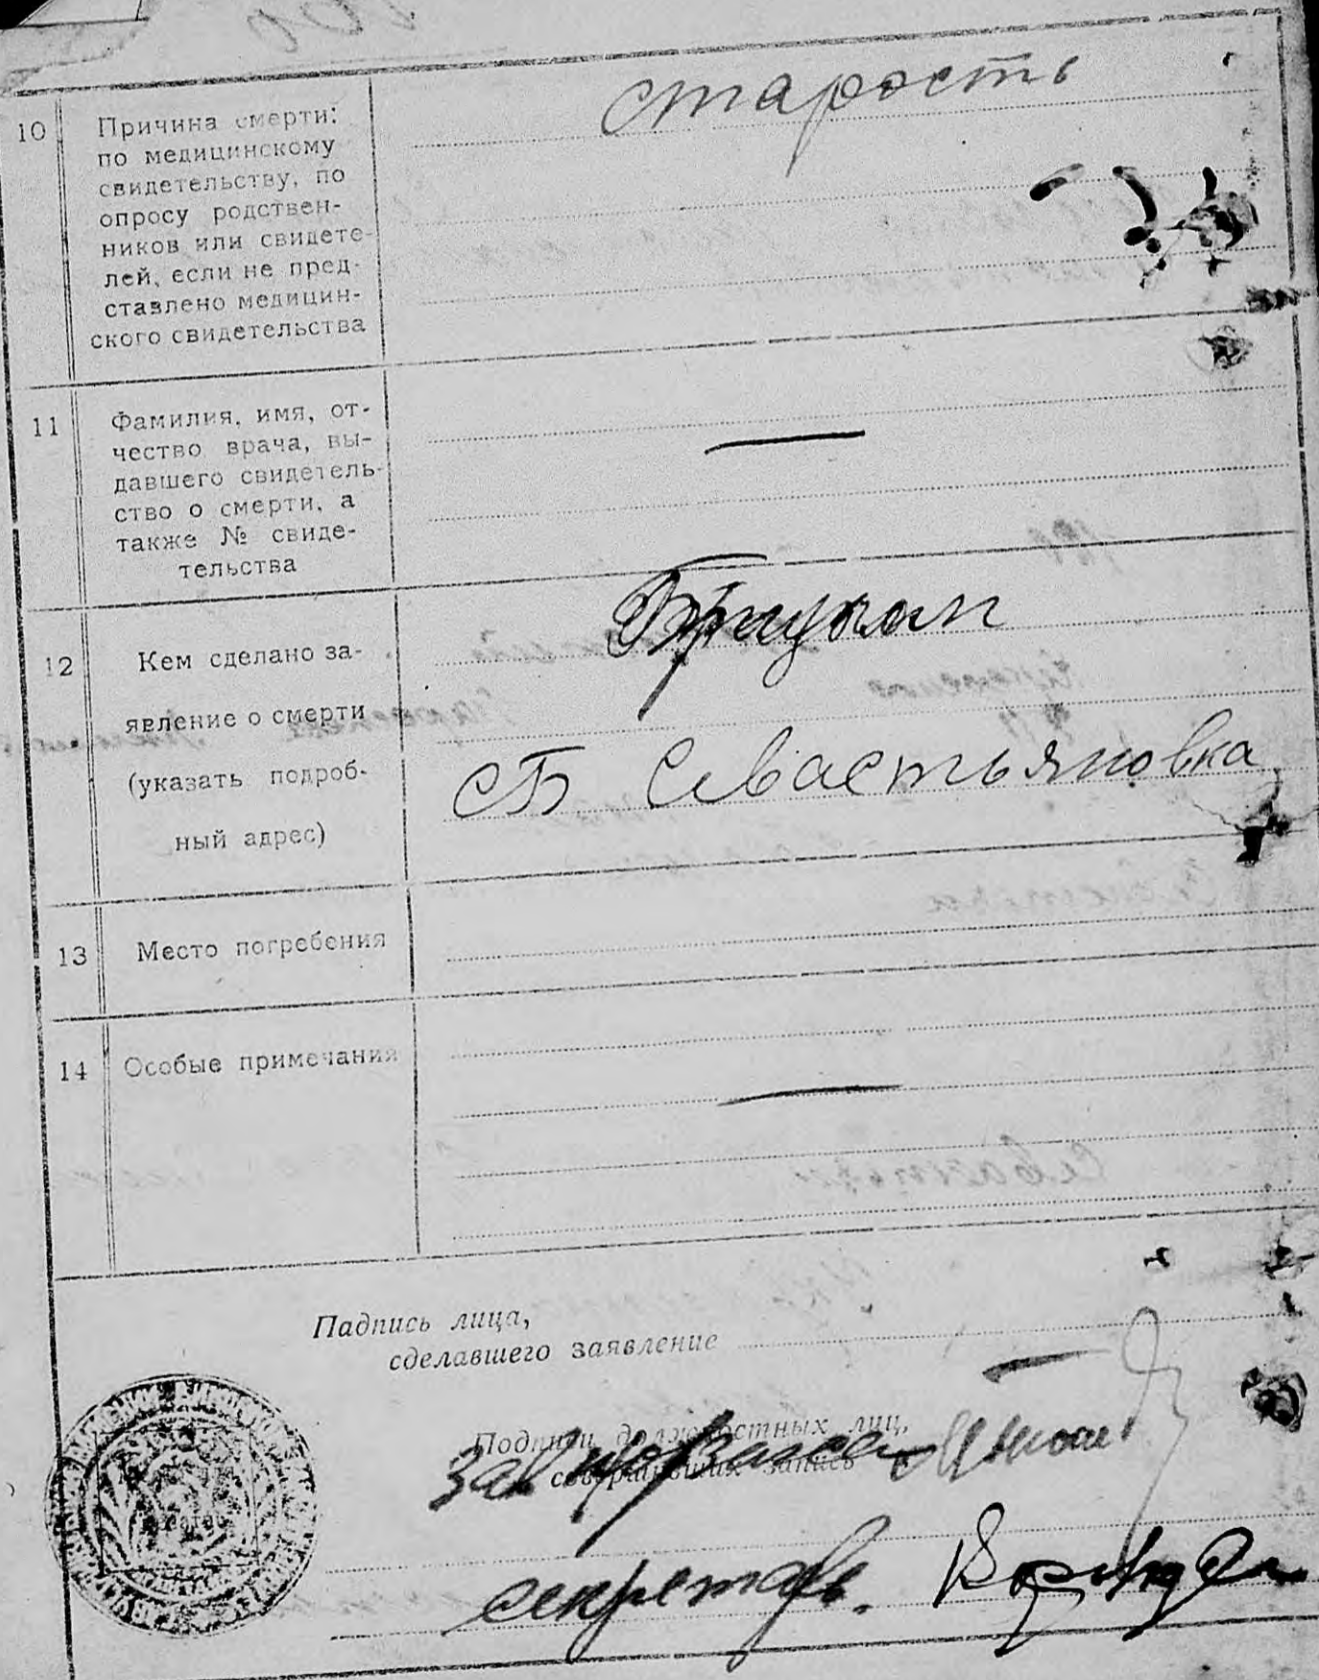 10
Причина смерти:
по медицинскому
свидетельству, по
опросу родствен-
ников или свидете-
лей, если не пред-
ставлено медицин-
ского свидетельства
старость
11
Фамилия, имя, от-
чество врача, вы-
давшего свидетель-
ство о смерти, а
также № свиде-
тельства
—
12
Кем сделано за-
явление о смерти
(указать подроб-
ный адрес)
Севастьяновка
13
Место погребения
14
Особые примечания
—
Падпись лица,
сделавшего заявление
—
Подписи должностных лиц,
совершивших запись
Зав
секретарь.